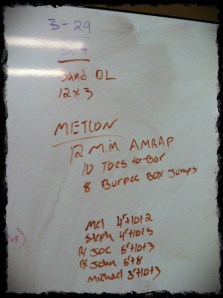 3-29
Band DL
12x3
METCON
12 min AMRAP
10 Toes-to-Bar
8 Burpee Box Jumps
Mel 4+10+2
Steph 4+10+5
Rx Joe 5+10+3
Rx John 5+8
Michael 3+10+3